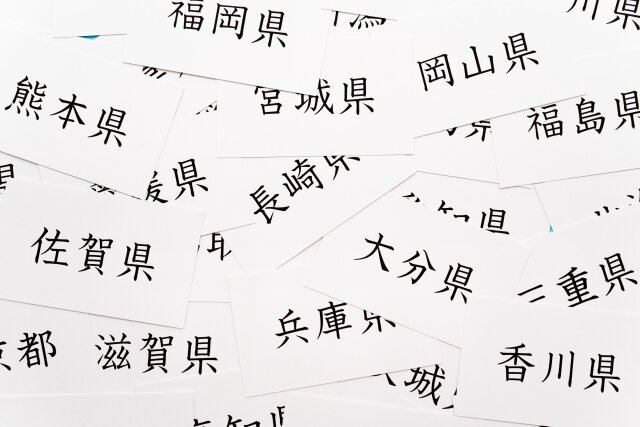 福岡県
川県
岡山県
熊本県
宮城県
福島県
媛県
長崎県
佐賀県
大分県
三重県
兵庫県
京都
滋賀県
香川県
城